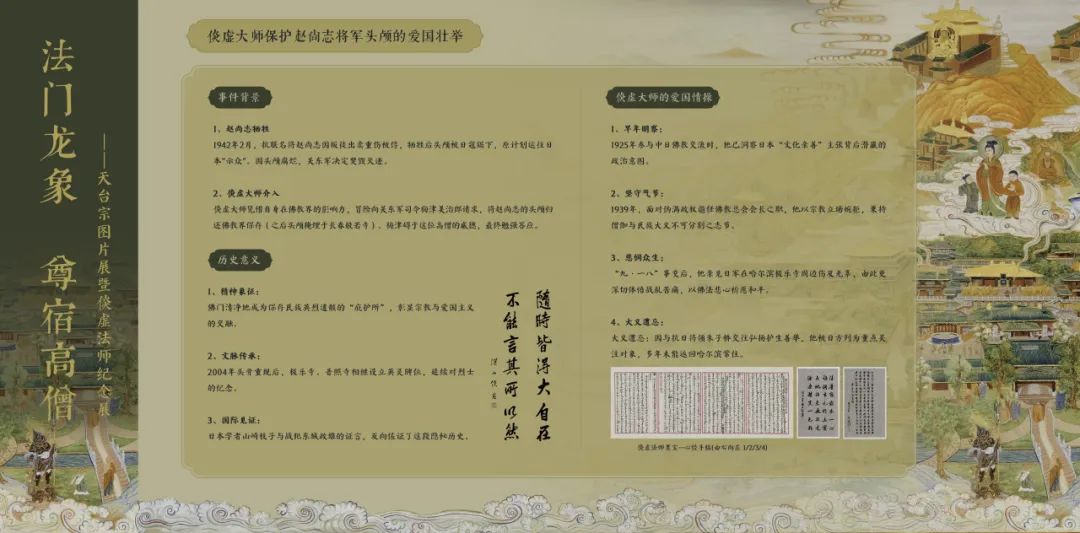 法门龙象 尊宿高僧
——天台宗图片展暨倓虚法师纪念展
倓虚大师保护赵尚志将军头颅的爱国壮举
事件背景
1、赵尚志牺牲
1942年2月，抗联名将赵尚志因叛徒出卖重伤被俘，牺牲后头颅被日寇锯下，原计划运往日
本"示众"。因头颅腐烂，关东军决定焚毁灭迹。
2、倓虚大师介入
倓虚大师凭借自身在佛教界的影响力，冒险向关东军司令梅津美治郎请求，将赵尚志的头颅归
还佛教界保存（之后头颅掩埋于长春般若寺）。梅津碍于这位高僧的威德，最终勉强答应。
历史意义
1、精神象征：
佛门清净地成为保存民族英烈遗骸的"庇护所"，彰显宗教与爱国主义
的交融。
2、文脉传承：
2004年头骨重现后，极乐寺、普照寺相继设立英灵牌位，延续对烈士
的纪念。
3、国际见证：
日本学者山崎枝子与战犯东城政雄的证言，反向佐证了这段隐秘历史。
隨時皆得大自在
不能言其所以然
倓虚大师的爱国情操
1、早年明察：
1925年参与中日佛教交流时，他已洞察日本"文化亲善"主张背后潜藏的
政治意图。
2、坚守气节：
1939年，面对伪满政权邀任佛教总会会长之职，他以宗教立场婉拒，秉持
僧伽与民族大义不可分割之志节。
3、悲悯众生：
"九·一八"事变后，他亲见日军在哈尔滨极乐寺周边伤及无辜，由此更
深切体悟战乱苦痛，以佛法悲心祈愿和平。
4、大义遗忌：
大义遗忌：因与抗日将领朱子桥交往弘扬护生善举，他被日方列为重点关
注对象，多年未能返回哈尔滨常住。
倓虚法师墨宝—心经手稿(由右向左 1/2/3/4)